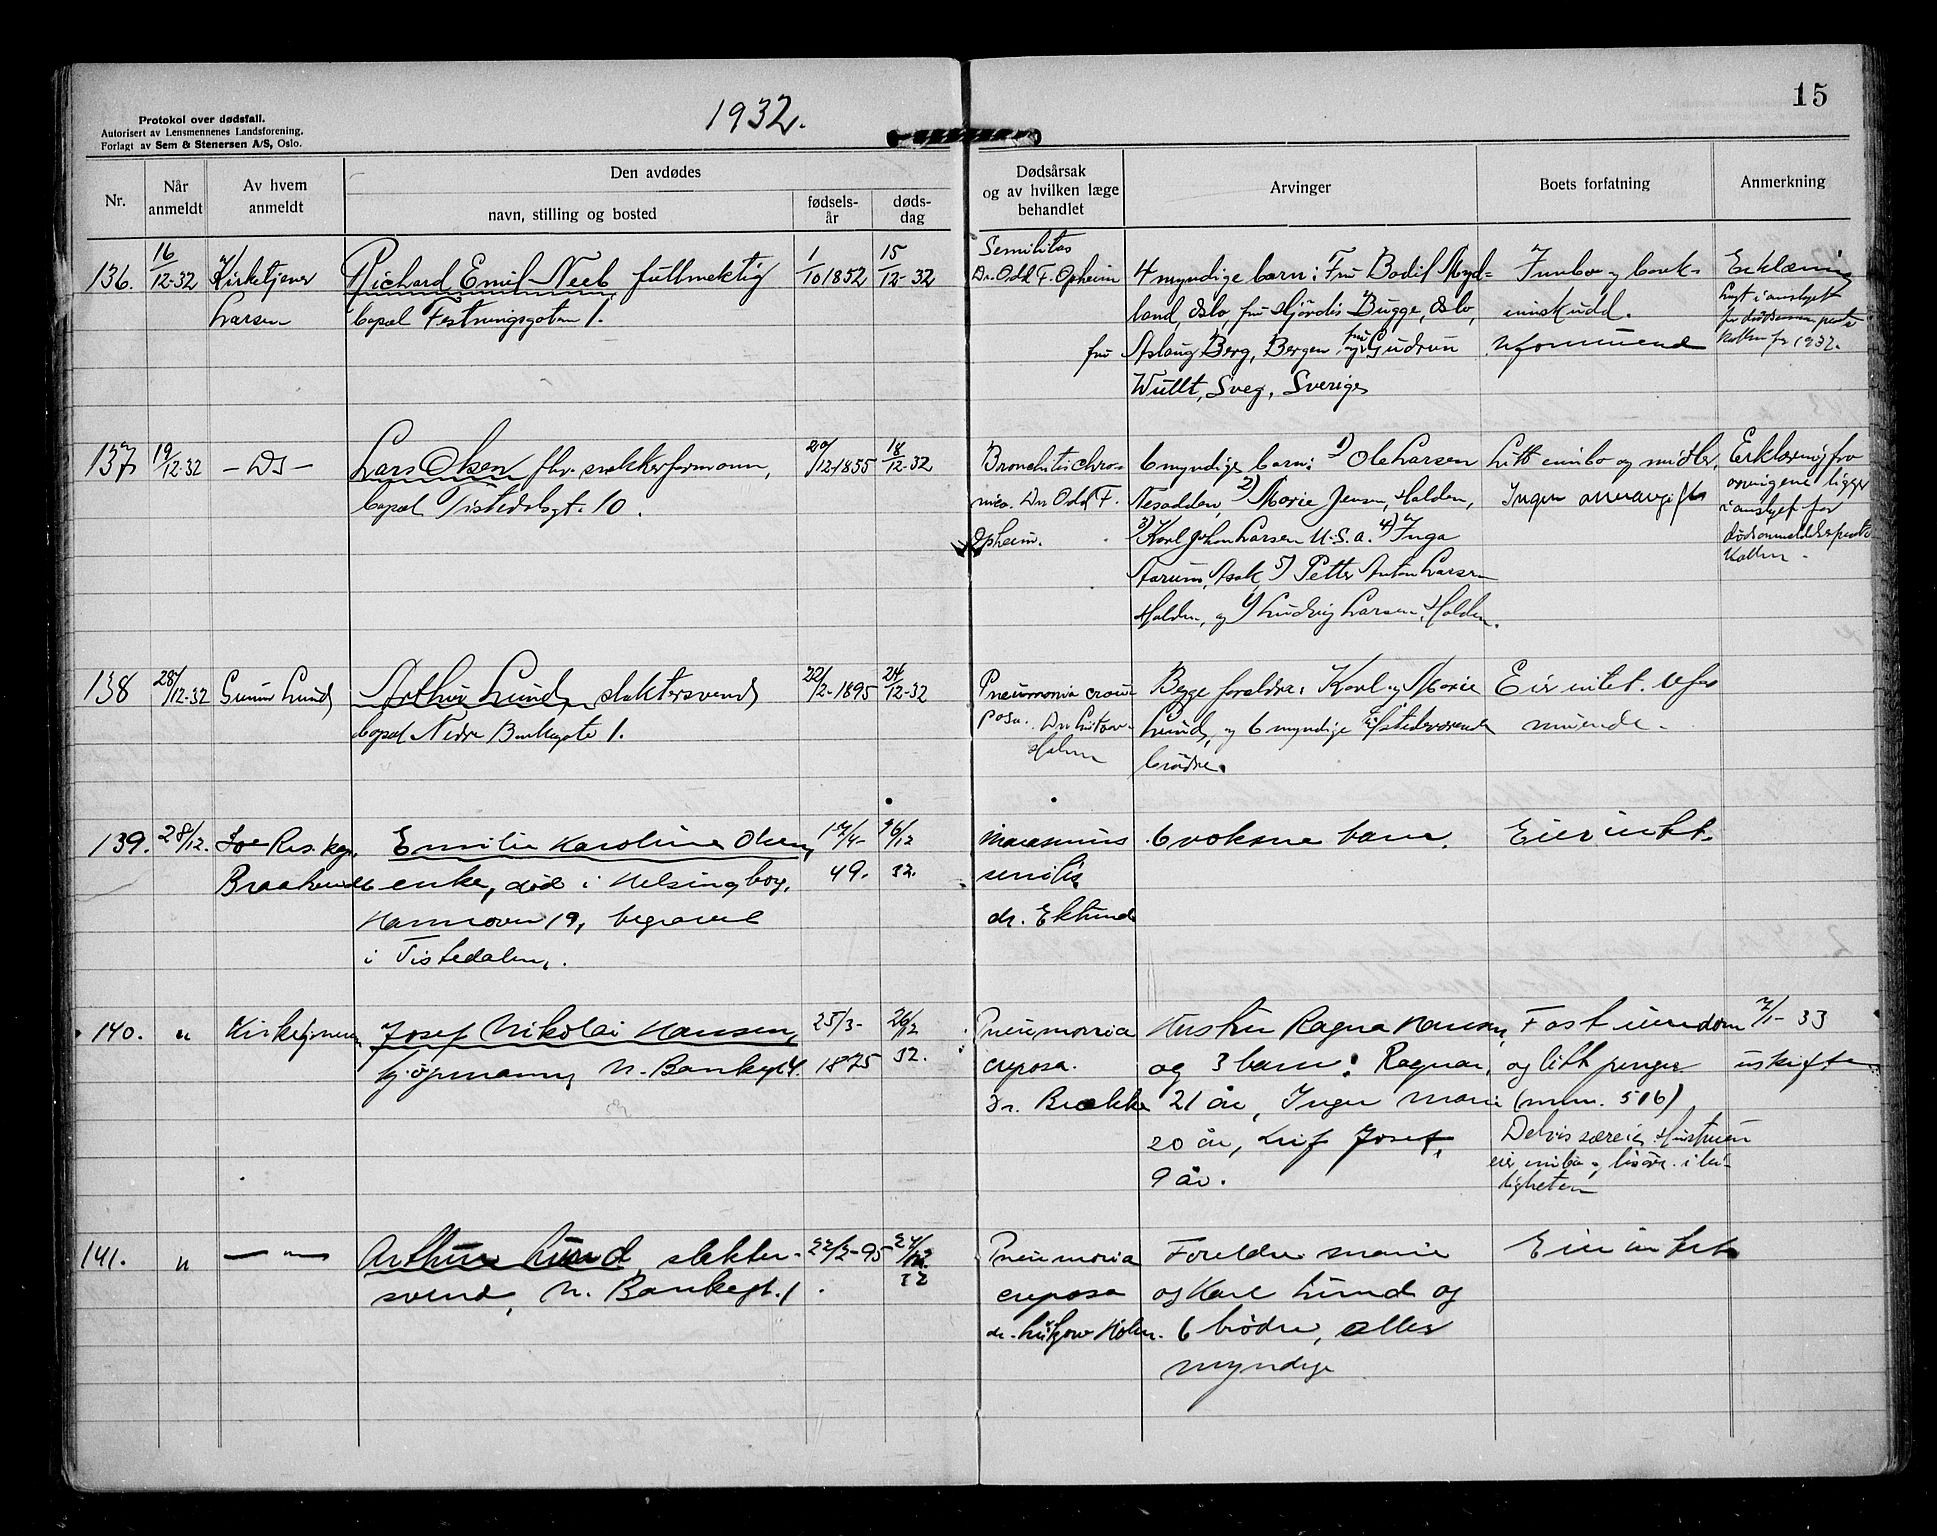 1932.
15
Protokol over dødsfall.
Autorisert av Lensmennenes Landsforening.
Forlagt av Sem & Stenersen A/S, Oslo.
Nr.
Når anmeldt
Av hvem anmeldt
Den avdødes
navn, stilling og bosted
fødsels-år
døds-dag
Dødsårsak og av hvilken læge behandlet
Arvinger
Boets forfatning
Anmerkning
136. 16/12-32 Kirketjener Larsen
Richard Emil Neeb, fullmektig
bopæl Festningsgaten 1.
1/10 1852 15/12-32
Senilitas
Dr. Odd F. Opheim
4 myndige barn: Fru Bodil Myd-
land, Oslo, fru Hjørdis Bugge, Oslo,
fru Aslaug Berg, Bergen og fru Gudrun
Wullt, Sveg, Sverige
Innbo og bank-
innskudd.
Uformuend
Erklæring
137 19/12-32 - Ds -
Lars Olsen fhv. snekkerformann,
bopæl Tistedalsgt. 10.
20/12-1855 18/12-32
Bronchitis chro-
nica. Dr. Odd F.
Opheim.
6 myndige barn: 1) Ole Larsen
Nesodden, 2) Marie Jensen, Halden,
3) Karl Johan Larsen U.S.A. 4) Inga
Aarum, Asak, 5) Petter Anton Larsen
Halden, og Ludvig Larsen, Halden.
Litt innbo og midler.
Ingen
Erklæring fra
arvingene ligger
i omslyet for
138 28/12-32 Gunnar Lund
Arthur Lund, slaktersvend
bopæl Nedre Bankegate 1.
22/2-1895 24/12-32
Pneumonia crou-
posa. Dr. Lützow-
Holm
Begge foreldre: Karl og Marie
Lund, og 6 myndige tilstedeværende
brødre.
Eier intet. Ufor
muende.
139. 28/12. Res. kap.
Braatend
Emilie Karoline Olsen,
enke, død i Helsingborg,
19, begravet
i Tistedalen.
17/4-
49.
26/12
32.
Marasmus
senilis
dr. Eklund
6 voksne barn.
Eier intet.
140. " Kirketjeneren
Josef Nikolai Hansen,
kjøpmann, N. Bankegt 4.
25/3-
1875
26/12
32.
Pneumonia
cruposa.
Dr. Brække
Hustru Ragna Hansen,
og 3 barn: Ragnar,
21 år, Inger Marie
20 år, Leif Josef,
9 år.
Fast eiendom
og litt penger
(mnr. 516)
Delvis særeie. Hustruen
eier innbo
7/1-33
uskifte
141. " — " —
Arthur Lund slakter-
svend, N. Bankegt. 1.
22/2-95
24/12
32
Pneumonia
cruposa
dr. Lützow Holm.
Foreldre Marie
og Karl Lund og
6 brødre, alle
myndige
Eier intet